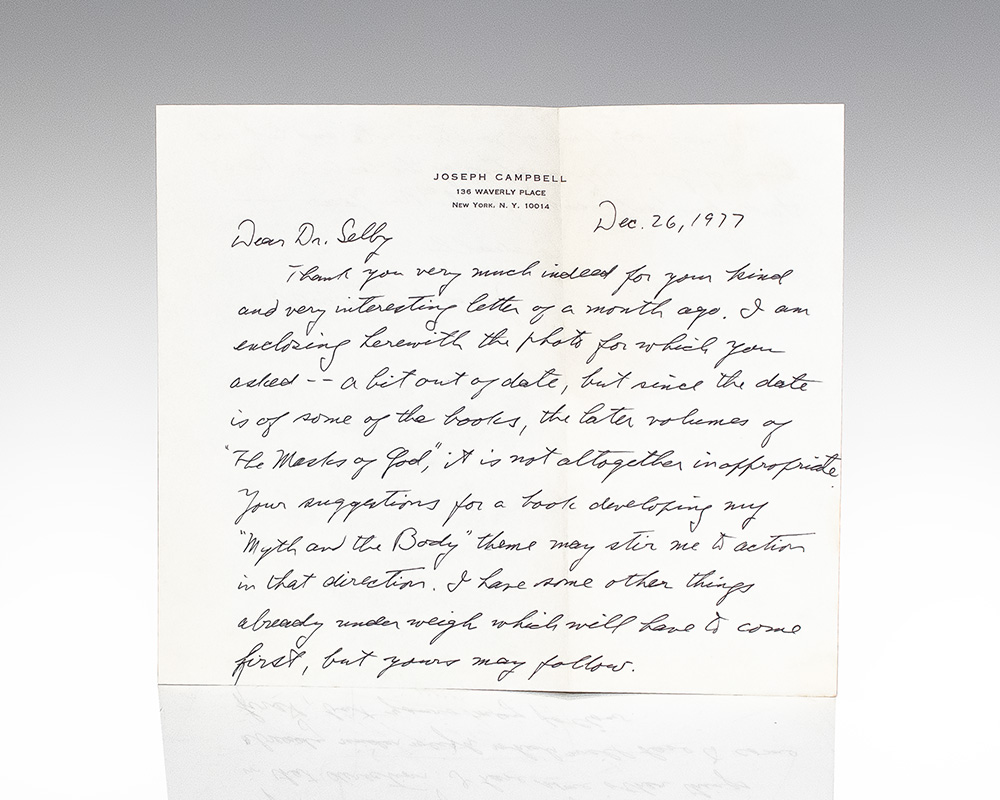 JOSEPH CAMPBELL
136 WAVERLY PLACE
NEW YORK, N. Y. 10014
Dec. 26, 1977
Dear Dr. Selby
Thank you very much indeed for your kind
and very interesting letter of a month ago. I am
enclosing herewith the photo for which you
asked -- a bit out of date, but since the date
is of some of the books, the later volumes of
"The Masks of God," it is not altogether inappropriate.
Your suggestions for a book developing my
"Myth and the Body" theme may stir me to action
in that direction. I have some other things
already under weigh which will have to come
first, but yours may follow.